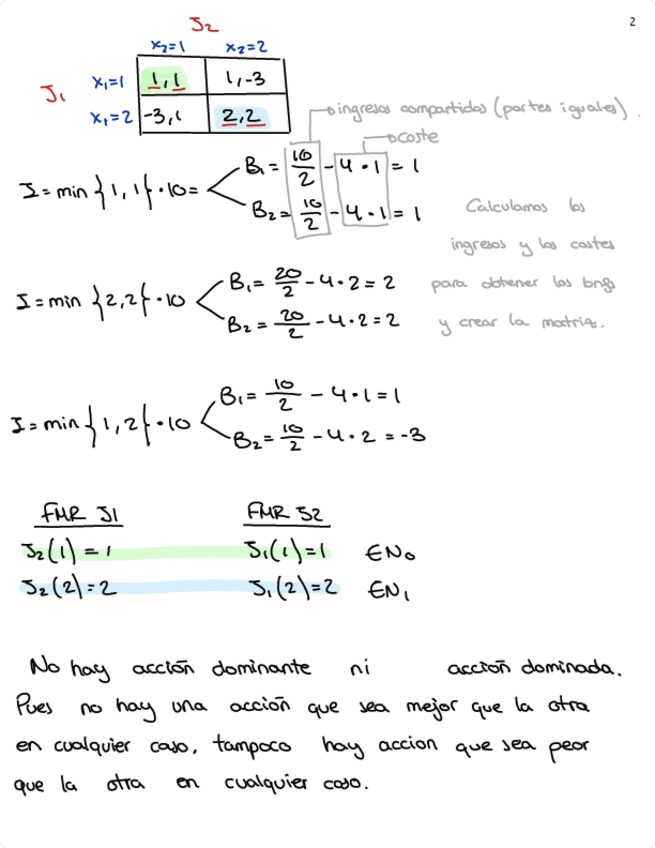 2
J2
x2=1 x2=2
J1 x1=1 1,1 1,-3
x1=2 -3,1 2,2
ingresos compartidos (partes iguales).
coste
I = min {1,1} · 10 =
B1 = 10/2 - 4 · 1 = 1
B2 = 10/2 - 4 · 1 = 1
Calculamos los
ingresos y los costes
para obtener los bnfs
y crear la matriz.
I = min {2,2} · 10
B1 = 20/2 - 4 · 2 = 2
B2 = 20/2 - 4 · 2 = 2
I = min {1,2} · 10
B1 = 10/2 - 4 · 1 = 1
B2 = 10/2 - 4 · 2 = -3
FMR J1 FMR J2
J2(1) = 1 J1(1) = 1 EN0
J2(2) = 2 J1(2) = 2 EN1
No hay acción dominante ni acción dominada.
Pues no hay una acción que sea mejor que la otra
en cualquier caso, tampoco hay accion que sea peor
que la otra en cualquier caso.